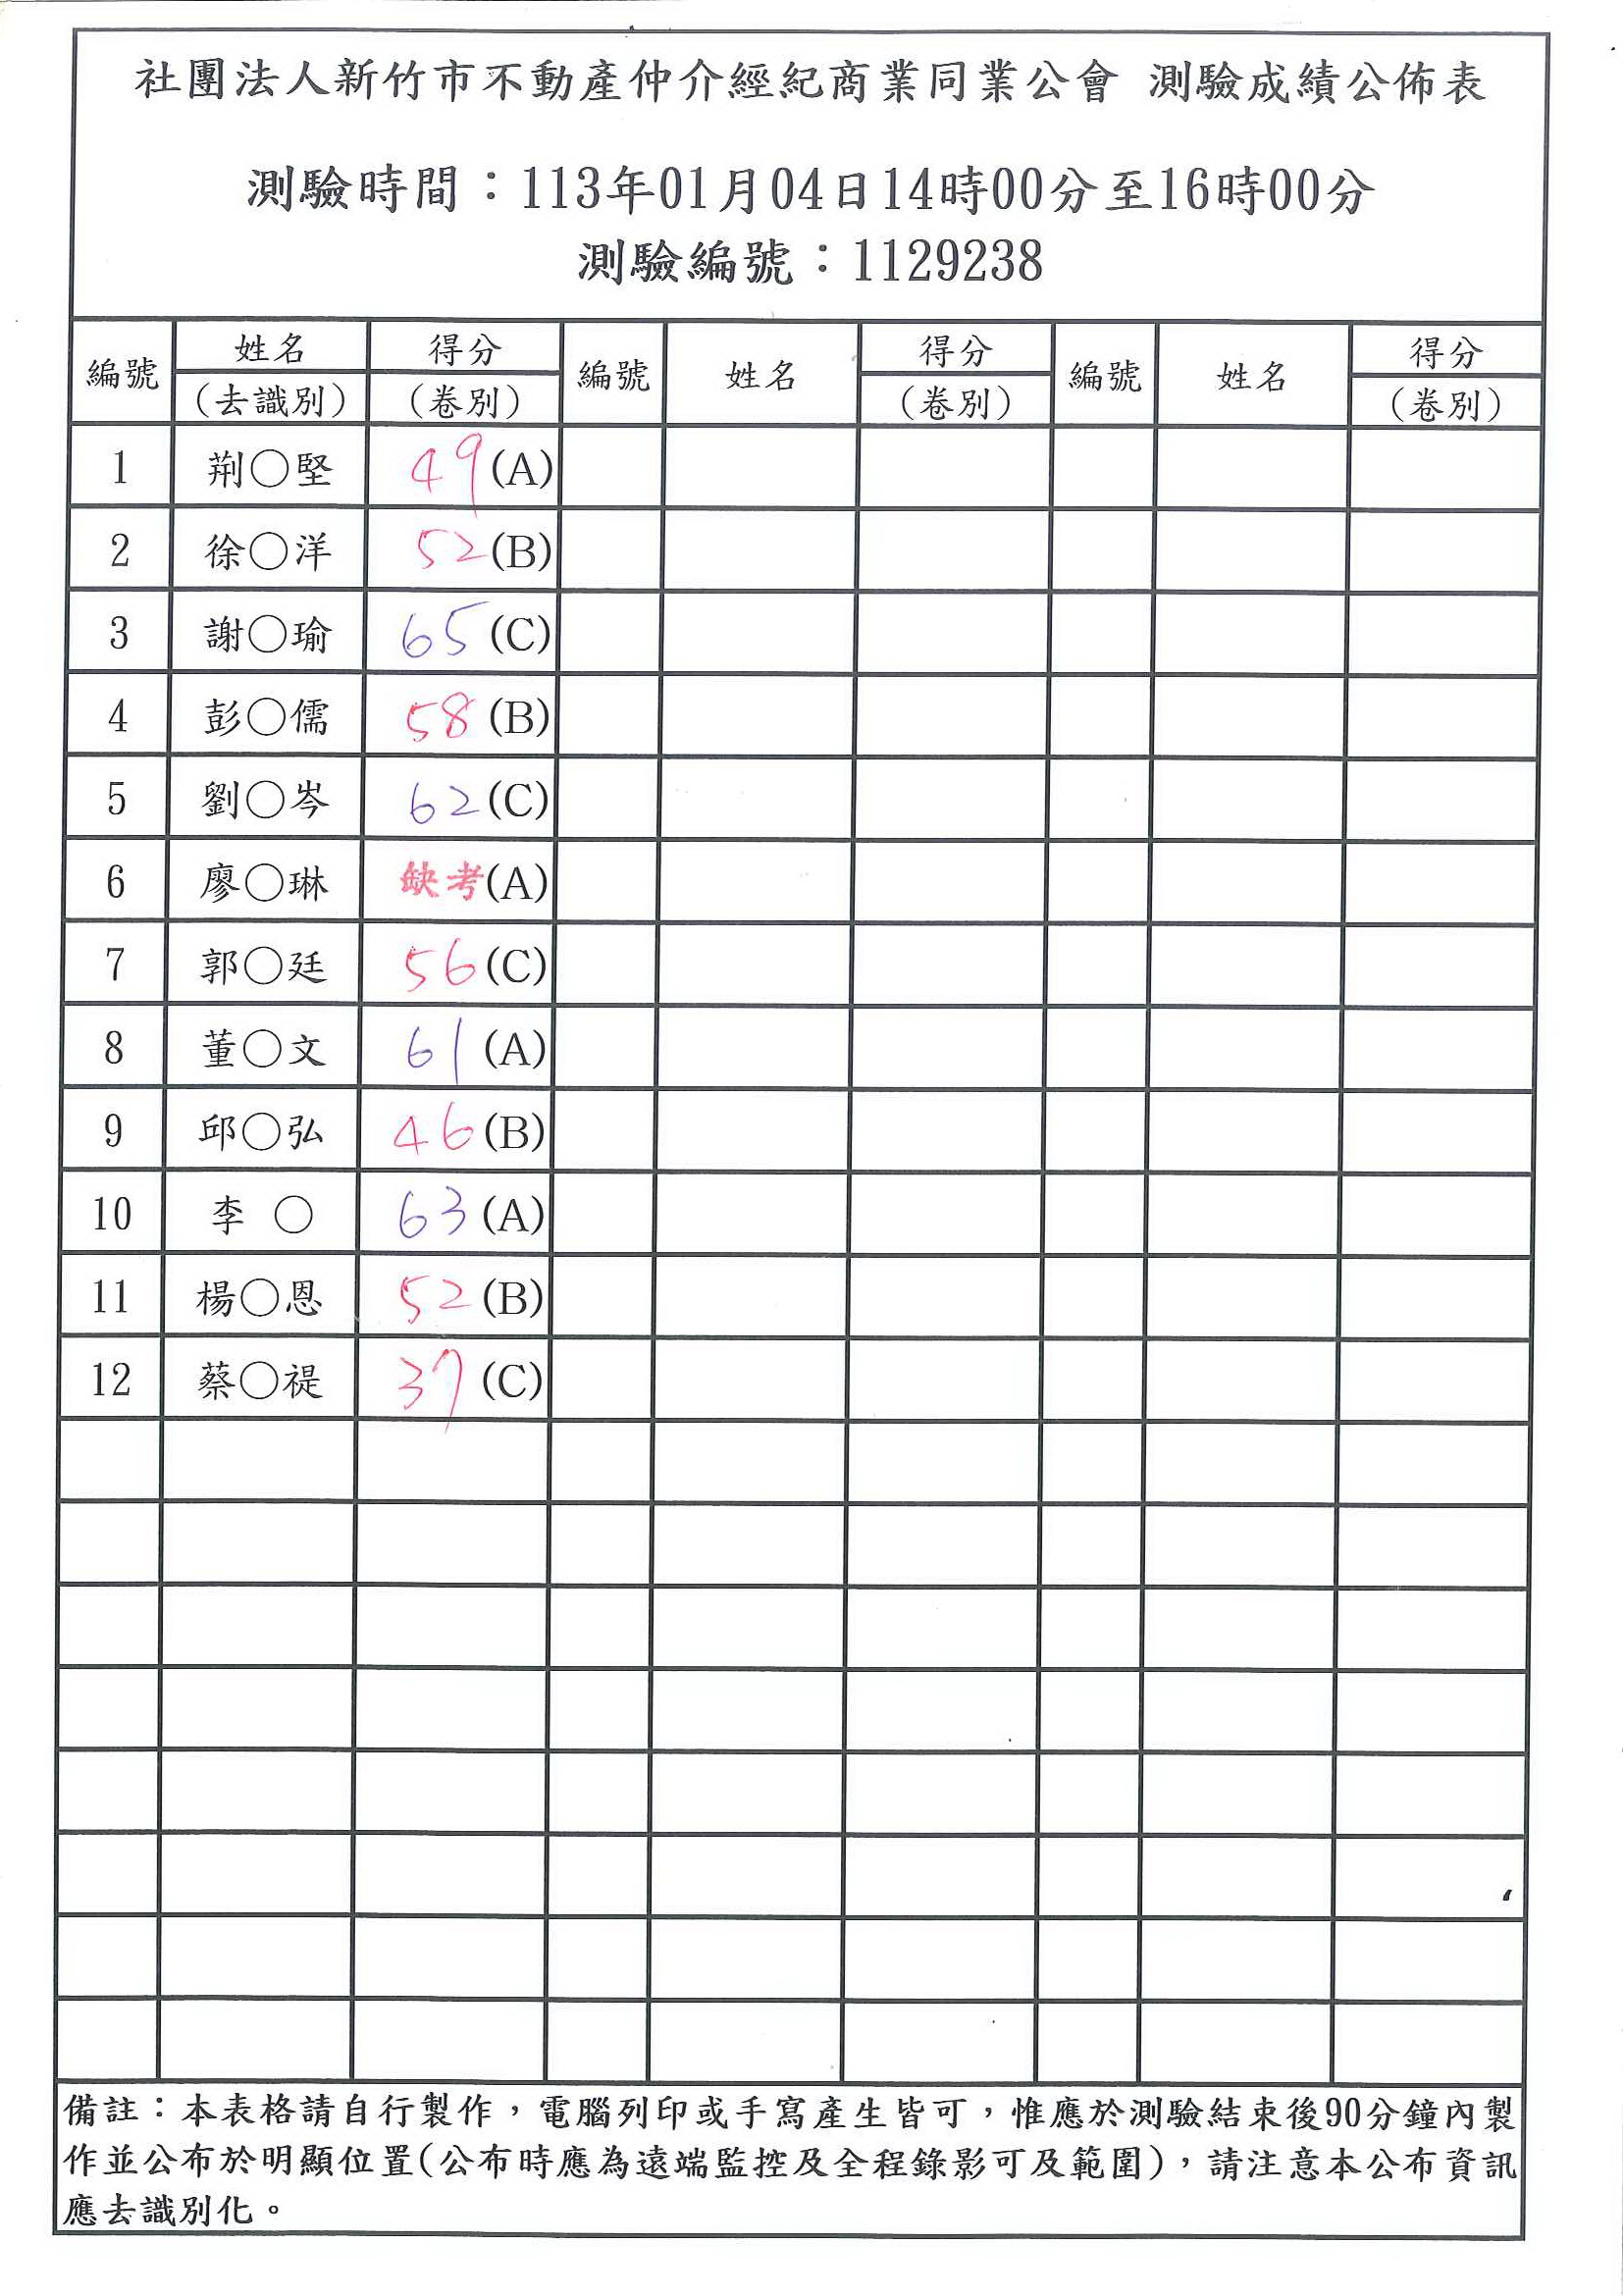 社團法人新竹市不動產仲介經紀商業同業公會 測驗成績公佈表
測驗時間：113年01月04日14時00分至16時00分
測驗編號：1129238
編號 姓名 得分 編號 姓名 得分 編號 姓名 得分
(去識別) (卷別) (卷別) (卷別)
1 荊○堅 49(A)
2 徐○洋 52(B)
3 謝○瑜 65(C)
4 彭○儒 58(B)
5 劉○岑 62(C)
6 廖○琳 缺考(A)
7 郭○廷 56(C)
8 董○文 61(A)
9 邱○弘 46(B)
10 李 ○ 63(A)
11 楊○恩 52(B)
12 蔡○禔 37(C)
備註：本表格請自行製作，電腦列印或手寫產生皆可，惟應於測驗結束後90分鐘內製
作並公布於明顯位置(公布時應為遠端監控及全程錄影可及範圍)，請注意本公布資訊
應去識別化。